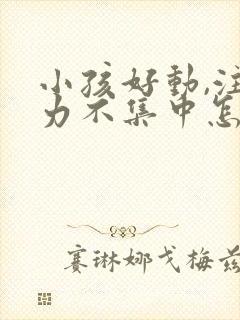 小孩好動,注
力不集中怎
賽琳娜戈梅茲